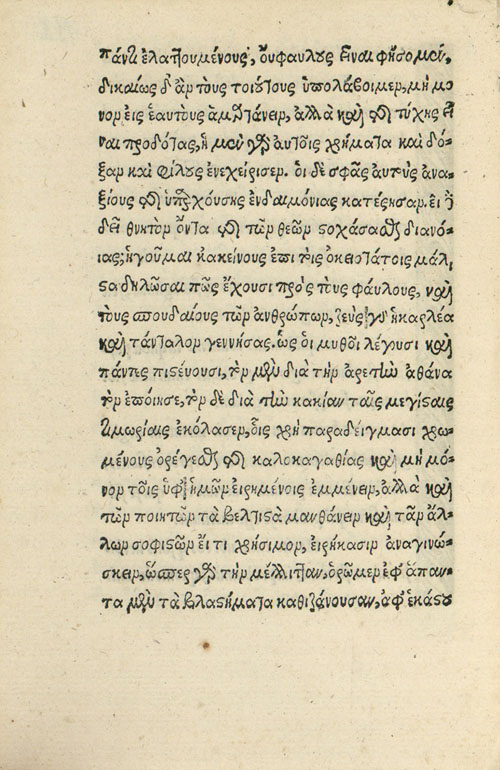 πάνυ ἐλαττουμένους, οὐ φαύλους εἶναι φήσομεν,
δικαίως δ' ἂν τοὺς τοιούτους ὑπολάβοιμεν, μὴ μό
νον εἰς ἑαυτοὺς ἁμαρτάνειν, ἀλλὰ καὶ τῆς τύχης εἶ
ναι προδότας, ἣ μὲν γὰρ αὐτοῖς χρήματα καὶ δό-
ξαν καὶ φίλους ἐνεχείρισεν. οἱ δὲ σφᾶς αὐτοὺς ἀνα-
ξίους τῆς ὑπαρχούσης ἐνδαιμόνιας κατέςησαν. εἰ
δεῖ θνητὸν ὄντα τῆς τῶν θεῶν ςοχάσασθαι διανό-
ιας; ἡγοῦμαι κἀκείνους ἐπὶ τοῖς οἰκειοτάτοις μάλι
ςα δηλῶσαι πῶς ἔχουσι πρὸς τοὺς φαύλους, καὶ
τοὺς σπουδαίους τῶν ἀνθρώπων, ζεὺς γὰρ ἡρακλέα
καὶ τάνταλον γεννήσας. ὡς οἱ μυθοι λέγουσι καὶ
πάντες πιςεύουσι, τὸν μὲν διὰ τὴν ἀρετὴν ἀθάνα
τον ἐποίησε, τὸν δὲ διὰ τὴν κακίαν ταῖς μεγίςαις
τιμωρίαις ἐκόλασεν, οἷς χρὴ παραδείγμασι χρω-
μένους ὀρέγεσθαι τῆς καλοκαγαθίας καὶ μὴ μό-
νον τοῖς ὑφ' ἡμῶν εἰρημένοις ἐμμένειν, ἀλλὰ καὶ
τῶν ποιητῶν τὰ βέλτιςα μανθάνειν καὶ τῶν ἄλ-
λων σοφιςῶν εἴ τι χρήσιμον, εἰρήκασιν ἀναγινώ-
σκειν, ὥσπερ γὰρ τὴν μέλιτταν, ὁρῶμεν ἐφ' ἅπαν-
τα μὲν τὰ βλαςήματα καθιζάνουσαν, ἀφ' ἑκάςου